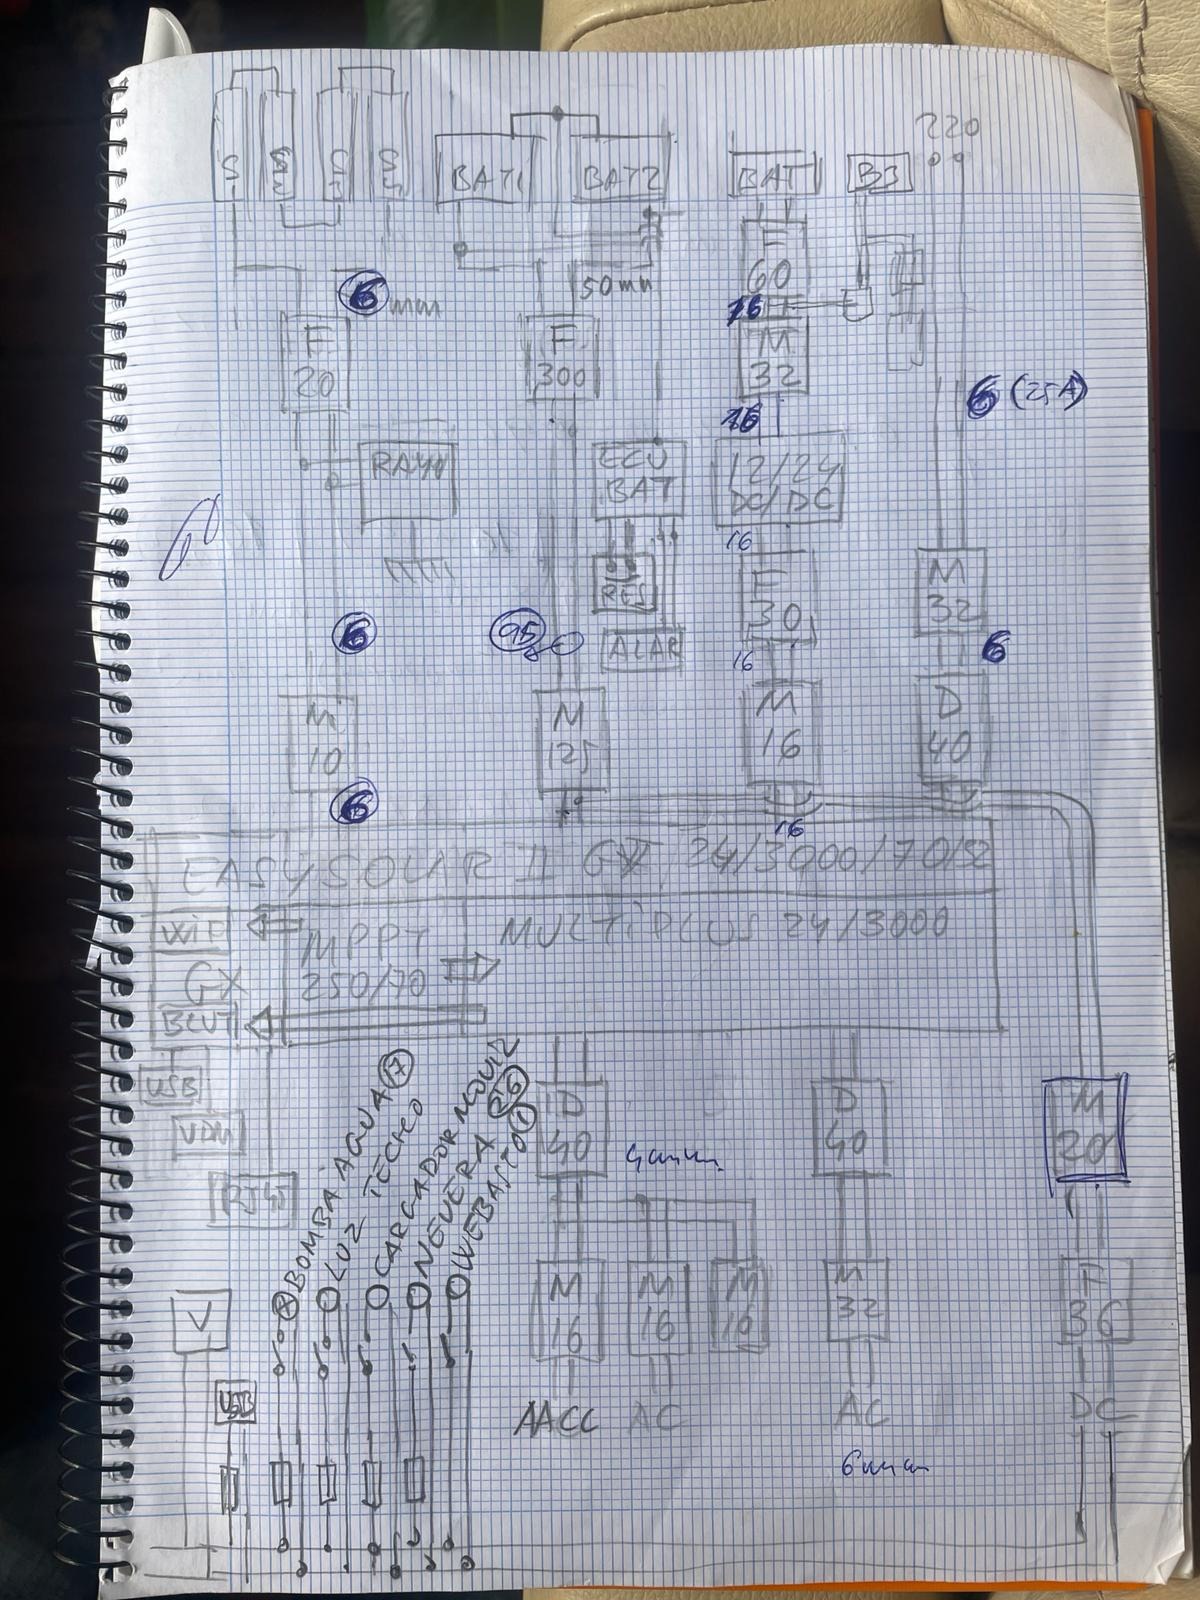 220
S1
S2
S3
S4
BAT1
BAT2
BAT
B3
6 mm
50mm
F
20
F
300
F
60
16
M
32
16
6 (25A)
RAYO
ECU
BAT
12/24
DC/DC
16
F
30
16
RES
ALAR
M
32
6
6
95
M
10
M
125
M
16
D
40
6
16
EASYSOLAR II GX 24/3000/70/32
WIFI
MPPT
250/70
MULTIPLUS 24/3000
GX
BLUT
USB
VDM
RJ45
BOMBA AGUA 7
LUZ TECHO
NEVERA 6
WEBASTO 1
D
40
4mm
D
40
M
20
M
16
M
16
M
16
M
32
F
36
V
USB
AACC
AC
AC
DC
6mm